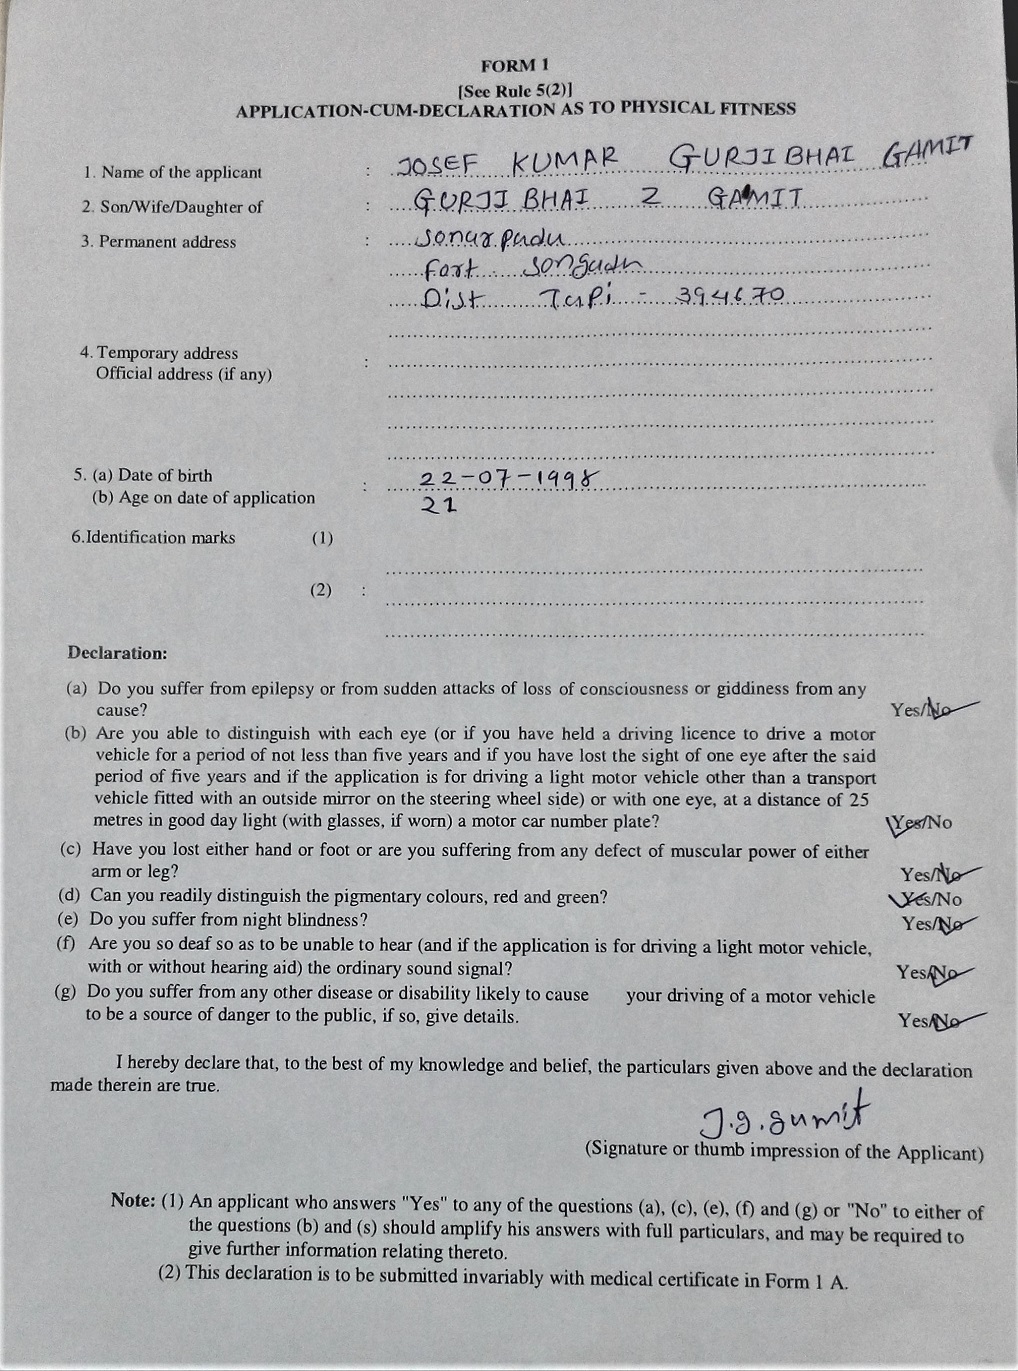 FORM 1
[See Rule 5(2)]
APPLICATION-CUM-DECLARATION AS TO PHYSICAL FITNESS
1. Name of the applicant : JOSEF KUMAR GURJIBHAI GAMIT
2. Son/Wife/Daughter of : GURJIBHAI Z GAMIT
3. Permanent address : sonarpada
Fort songadh
Dist Tapi - 394670
4. Temporary address :
Official address (if any)
5. (a) Date of birth : 22-07-1998
(b) Age on date of application 21
6.Identification marks (1)
(2) :
Declaration:
(a) Do you suffer from epilepsy or from sudden attacks of loss of consciousness or giddiness from any
cause? Yes/No
(b) Are you able to distinguish with each eye (or if you have held a driving licence to drive a motor
vehicle for a period of not less than five years and if you have lost the sight of one eye after the said
period of five years and if the application is for driving a light motor vehicle other than a transport
vehicle fitted with an outside mirror on the steering wheel side) or with one eye, at a distance of 25
metres in good day light (with glasses, if worn) a motor car number plate? Yes/No
(c) Have you lost either hand or foot or are you suffering from any defect of muscular power of either
arm or leg? Yes/No
(d) Can you readily distinguish the pigmentary colours, red and green? Yes/No
(e) Do you suffer from night blindness? Yes/No
(f) Are you so deaf so as to be unable to hear (and if the application is for driving a light motor vehicle,
with or without hearing aid) the ordinary sound signal? Yes/No
(g) Do you suffer from any other disease or disability likely to cause your driving of a motor vehicle
to be a source of danger to the public, if so, give details. Yes/No
I hereby declare that, to the best of my knowledge and belief, the particulars given above and the declaration
made therein are true.
J.g.gamit
(Signature or thumb impression of the Applicant)
Note: (1) An applicant who answers "Yes" to any of the questions (a), (c), (e), (f) and (g) or "No" to either of
the questions (b) and (s) should amplify his answers with full particulars, and may be required to
give further information relating thereto.
(2) This declaration is to be submitted invariably with medical certificate in Form 1 A.